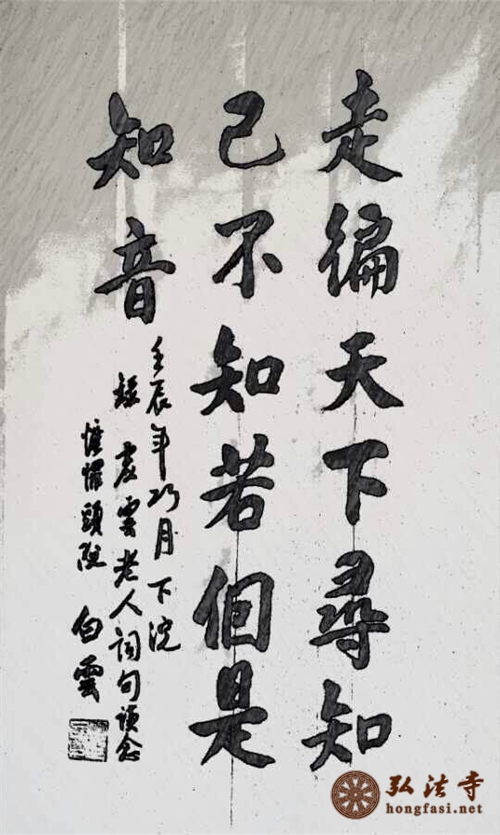 走徧天下尋知
己不知若個是
知音
壬辰年巧月下浣
錄虛雲老人詞句念
頭陀 白雲
弘法寺
hongfasi.net